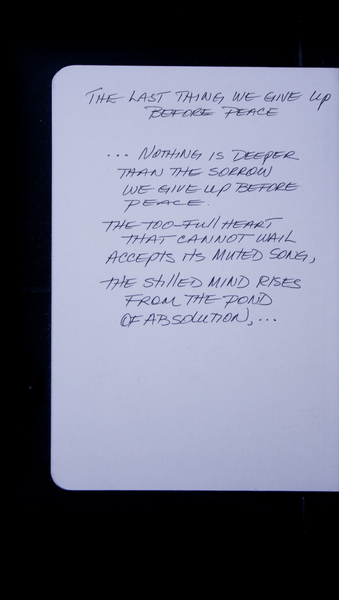 THE LAST THING WE GIVE UP
BEFORE PEACE
... NOTHING IS DEEPER
THAN THE SORROW
WE GIVE UP BEFORE
PEACE.
THE TOO-FULL HEART
THAT CANNOT WAIL
ACCEPTS ITS MUTED SONG,
THE STILLED MIND RISES
FROM THE POND
OF ABSOLUTION, ...